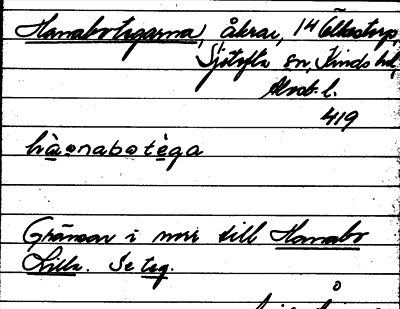 Hanabotegarna, åkrar, 14 Gälkstorp,
Sjötofta sn, Kinds hd,
Älvsb. l.
419
hànabotèga
Gränsar i norr till Hanabo
Lilla. Se teg.